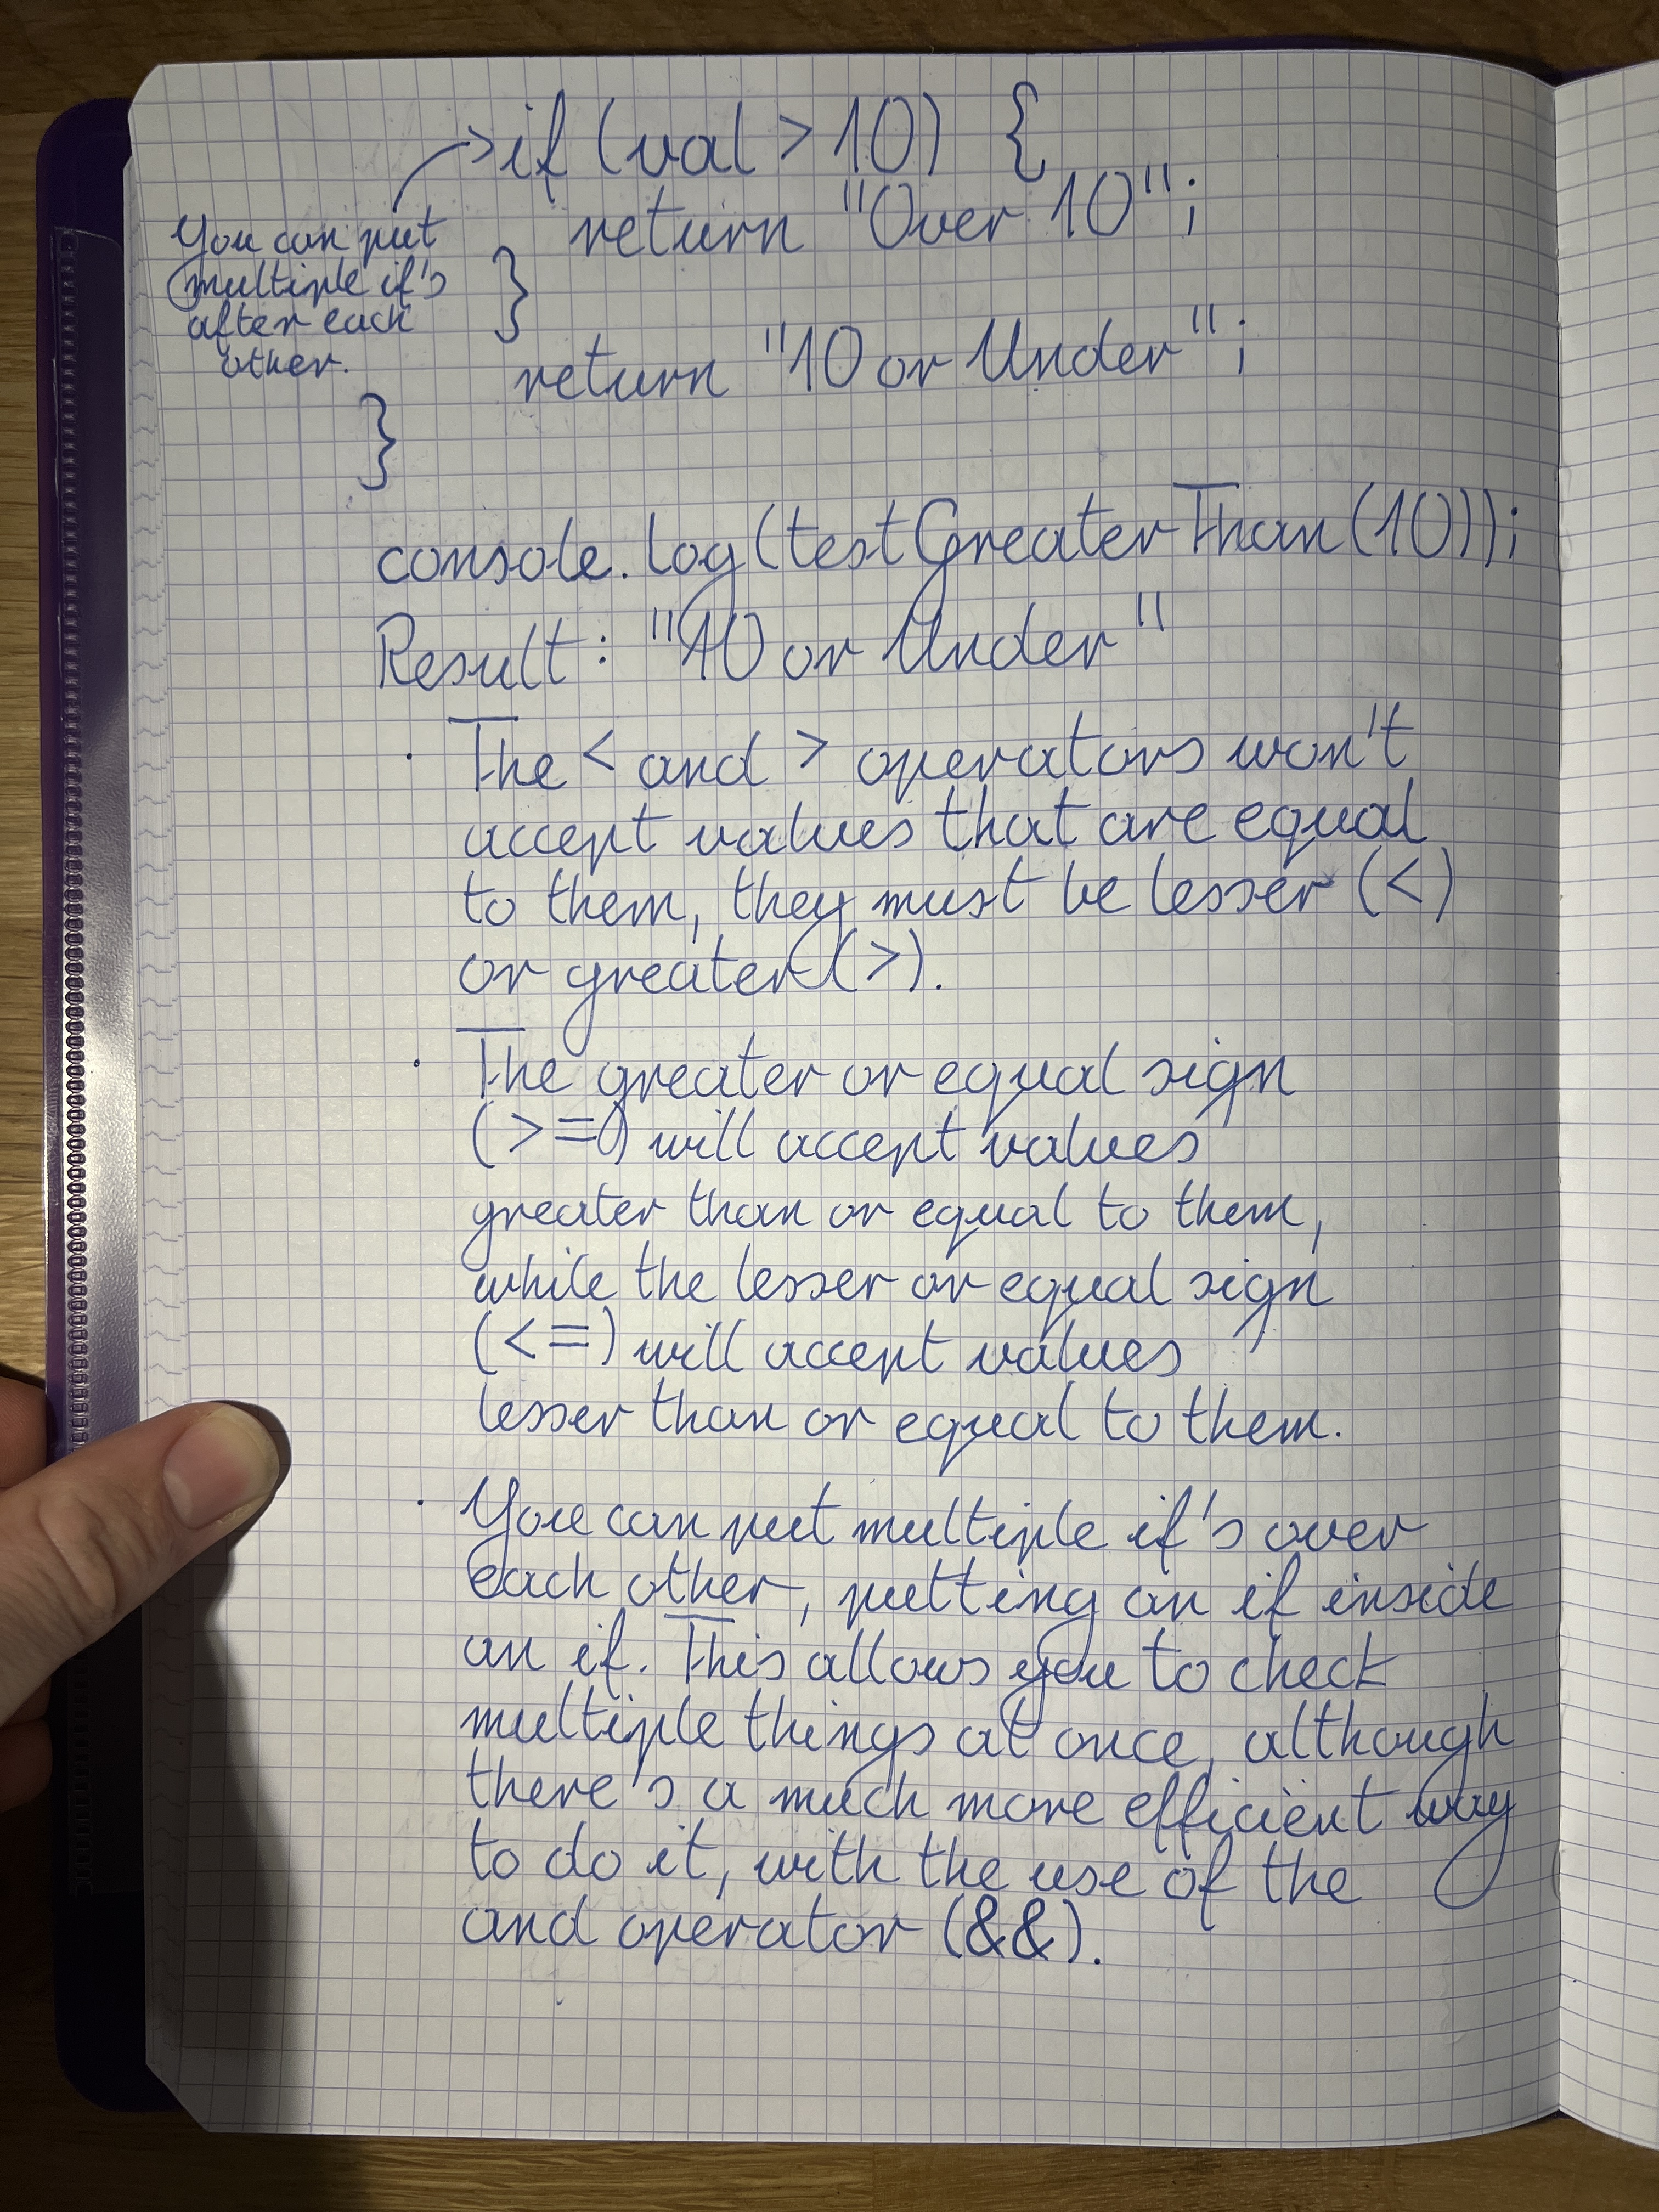 if (val > 10) {
return "Over 10";
You can put
multiple if's
after each
other.
}
return "10 or Under";
}
console.log(testGreaterThan(10));
Result: "10 or Under"
· The < and > operators won't
accept values that are equal
to them, they must be lesser (<)
or greater (>).
· The greater or equal sign
(>=) will accept values
greater than or equal to them,
while the lesser or equal sign
(<=) will accept values
lesser than or equal to them.
· You can put multiple if's over
each other, putting an if inside
an if. This allows you to check
multiple things at once, although
there's a much more efficient way
to do it, with the use of the
and operator (&&).